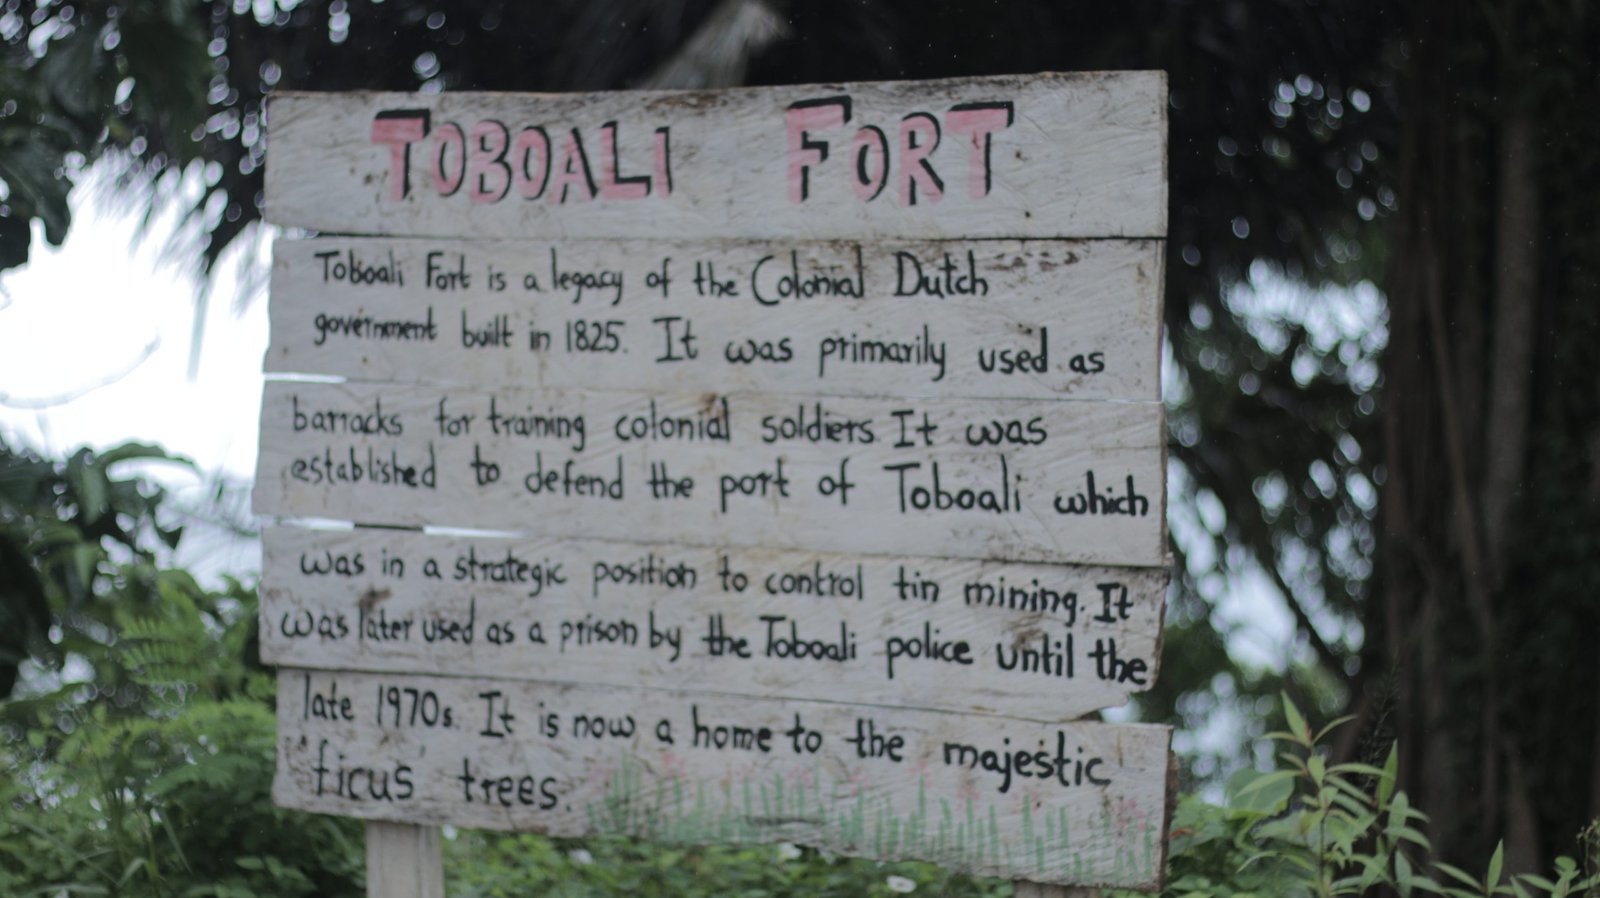 TOBOALI FORT
Toboali Fort is a legacy of the Colonial Dutch
government built in 1825. It was primarily used as
barracks for training colonial soldiers. It was
established to defend the port of Toboali which
was in a strategic position to control tin mining. It
was later used as a prison by the Toboali police until the
late 1970s. It is now a home to the majestic
'ficus' trees.